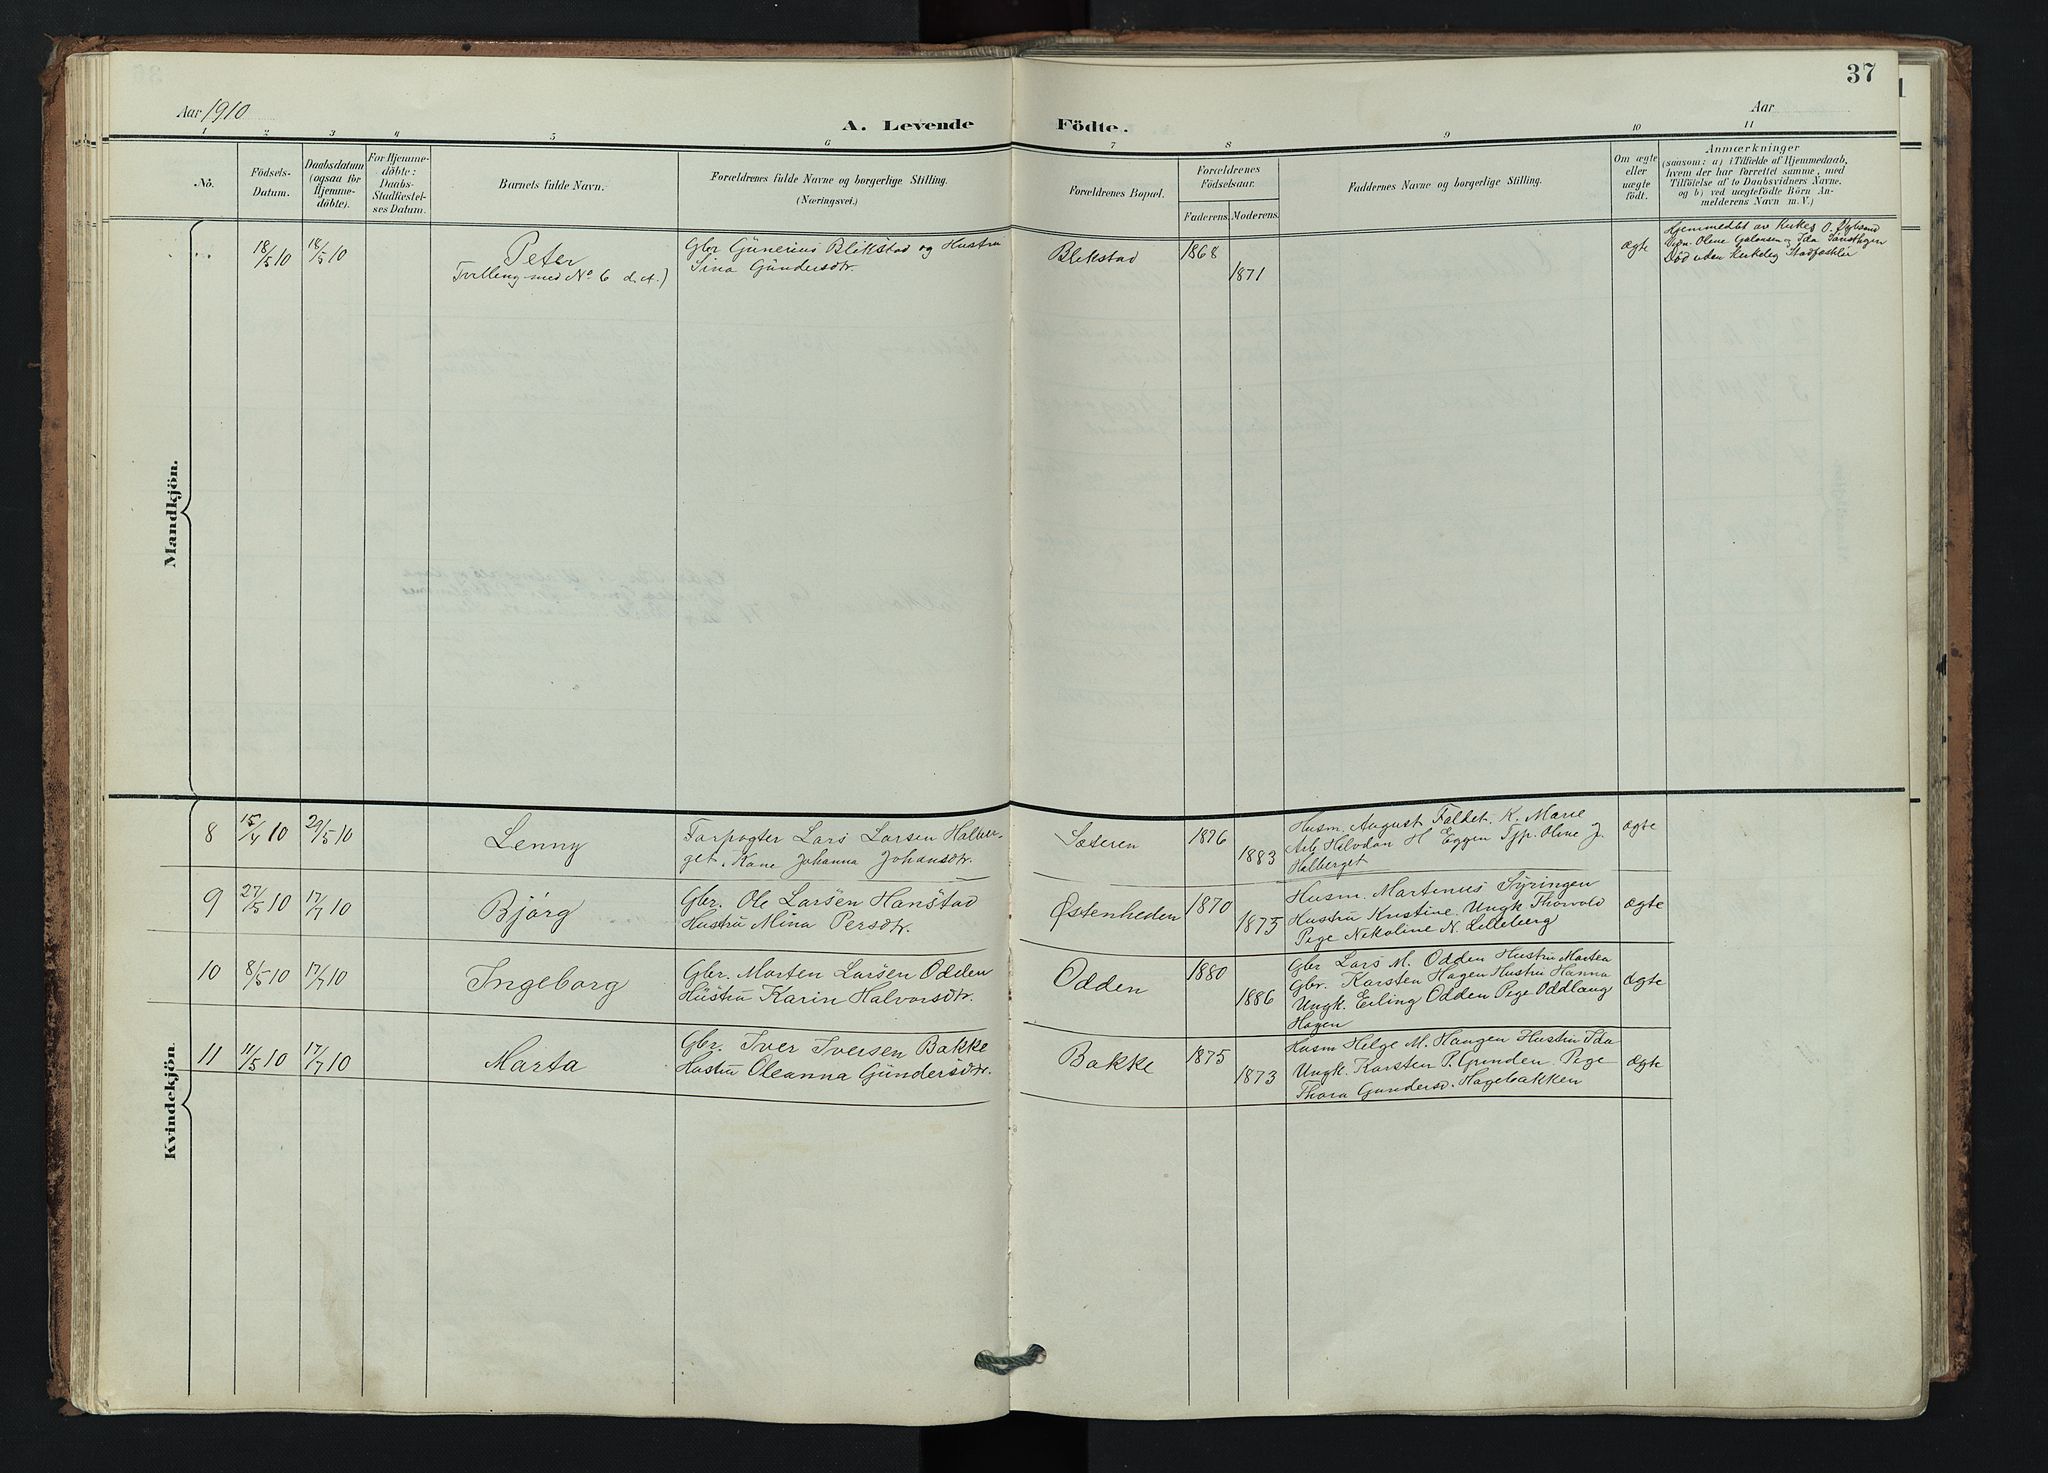 Aar 1910
A. Levende Födte.
37
Aar
1 2 3 4 5 6 7 8 9 10 11
No.
Födsels-
Datum.
Daabsdatum
(ogsaa for
Hjemme-
döbte).
For Hjemme-
döbte:
Daabs-
Stadfæstel-
ses Datum.
Barnets fulde Navn.
Forældrenes fulde Navne og borgerlige Stilling.
(Næringsvei.)
Forældrenes Bopæl.
Forældrenes
Fødselsaar.
Faderens. Moderens.
Faddernes Navne og borgerlige Stilling.
Om ægte
eller
uægte
födt.
Anmærkninger
(saasom: a) i Tilfælde af Hjemmedaab,
hvem der har forrettet samme, med
Tilföielse af to Daabsvidners Navne,
og b) ved uægtefödte Börn An-
melderens Navn m. V.)
Mandkjön.
18/5 10
18/5 10
Peter
Tvilling med No 6 d. A.)
Gbr Günerius Blikstad og Hustru
Sina Gündersdtr.
Blikstad
1868
1871
ægte
Hjemmedbt av Kirkes. O.
Olene Galaasen og Ida
Död uden kirkelig
Kvindekjön.
8
15/4 10
29/5 10
Lenny
Forpagter Lars Larsen Halber-
get, Kone Johanna Johansdtr.
Sæteren
1876
1883
Husm. August Faldet. K. Marie
Arb. Halvdan H Eggen Tjp. Oline J.
Halberget
ægte
9
27/5 10
17/7 10
Bjørg
Gbr. Ole Larsen Hanstad
Hustru Mina Persdtr.
Østenheden
1870
1875
Husm. Martinus Syringen
Hustru Kristine. Ungk. Thorvald
Pige Nikoline N. Lilleberg
ægte
10
8/5 10
17/7 10
Ingeborg
Gbr. Morten Larsen Odden
Hüstru Karin Halvorsdtr.
Odden
1880
1886
Gbr Lars M. Odden Hustru Martea
Gbr. Karsten Hagen Hustru Hanna
Ungk. Erling Odden Pige Oddlaug
Hagen
ægte
11
11/5 10
17/7 10
Marta
Gbr. Iver Iversen Bakke
Hustru Oleanna Gündersdtr.
Bakke
1875
1873
Husm Helge M. Haugen Hustru Ida
Ungk. Karsten P. Grinden. Pige
Thora Gundersd. Hagebakken
ægte